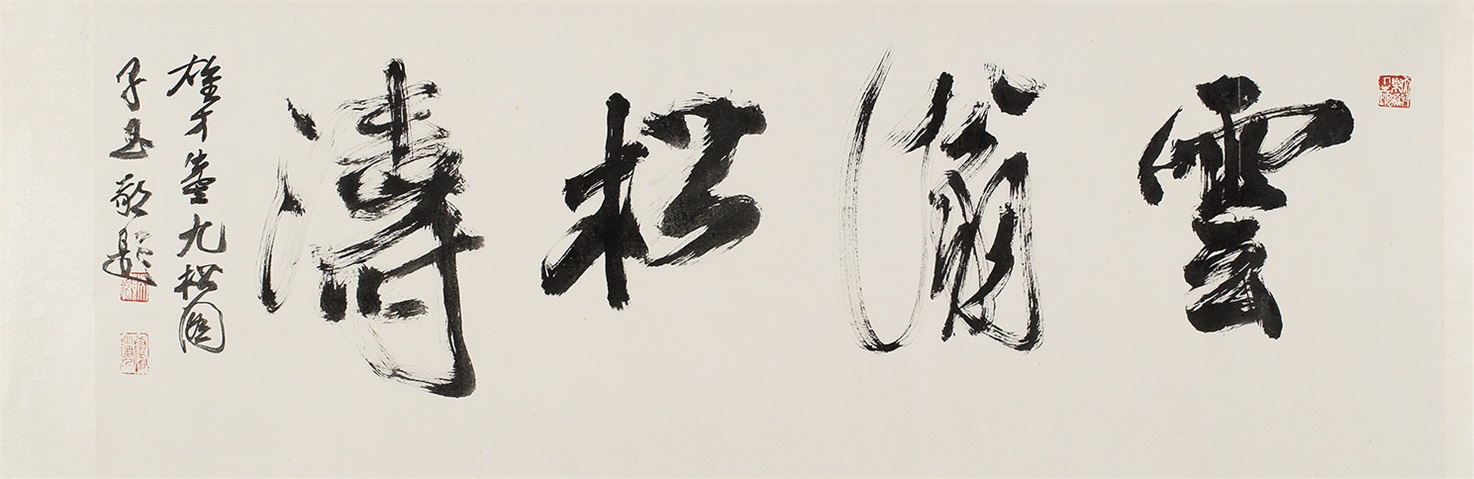 雲滃松濤
雄才畫九松图
子玉敬題